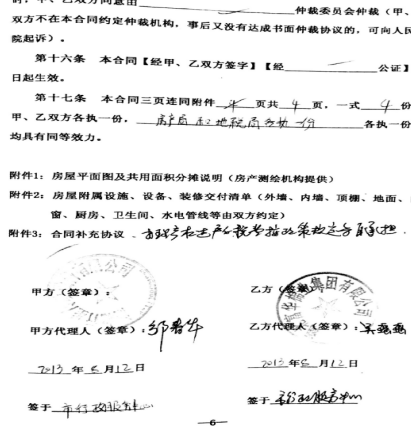 时，甲、乙双方同意由 仲裁委员会仲裁（甲、
双方不在本合同约定仲裁机构，事后又没有达成书面仲裁协议的，可向人民
院起诉）。
第十六条 本合同【经甲、乙双方签字】【经 公证】
日起生效。
第十七条 本合同三页连同附件 页共 4 页，一式 4 份
甲、乙双方各执一份， 房产局和地税局各执一份 各执一份
均具有同等效力。
附件1：房屋平面图及共用面积分摊说明（房产测绘机构提供）
附件2：房屋附属设施、设备、装修交付清单（外墙、内墙、顶棚、地面、
窗、厨房、卫生间、水电管线等由双方约定）
附件3：合同补充协议
甲方（签章）：
乙方（签章）
集团有限公司
甲方代理人（签章）：
乙方代理人（签章）：吴燕燕
2013 年 6 月 12 日
2013 年 6 月 12 日
签于 市行政服务中心
签于 市行政服务中心
—6—